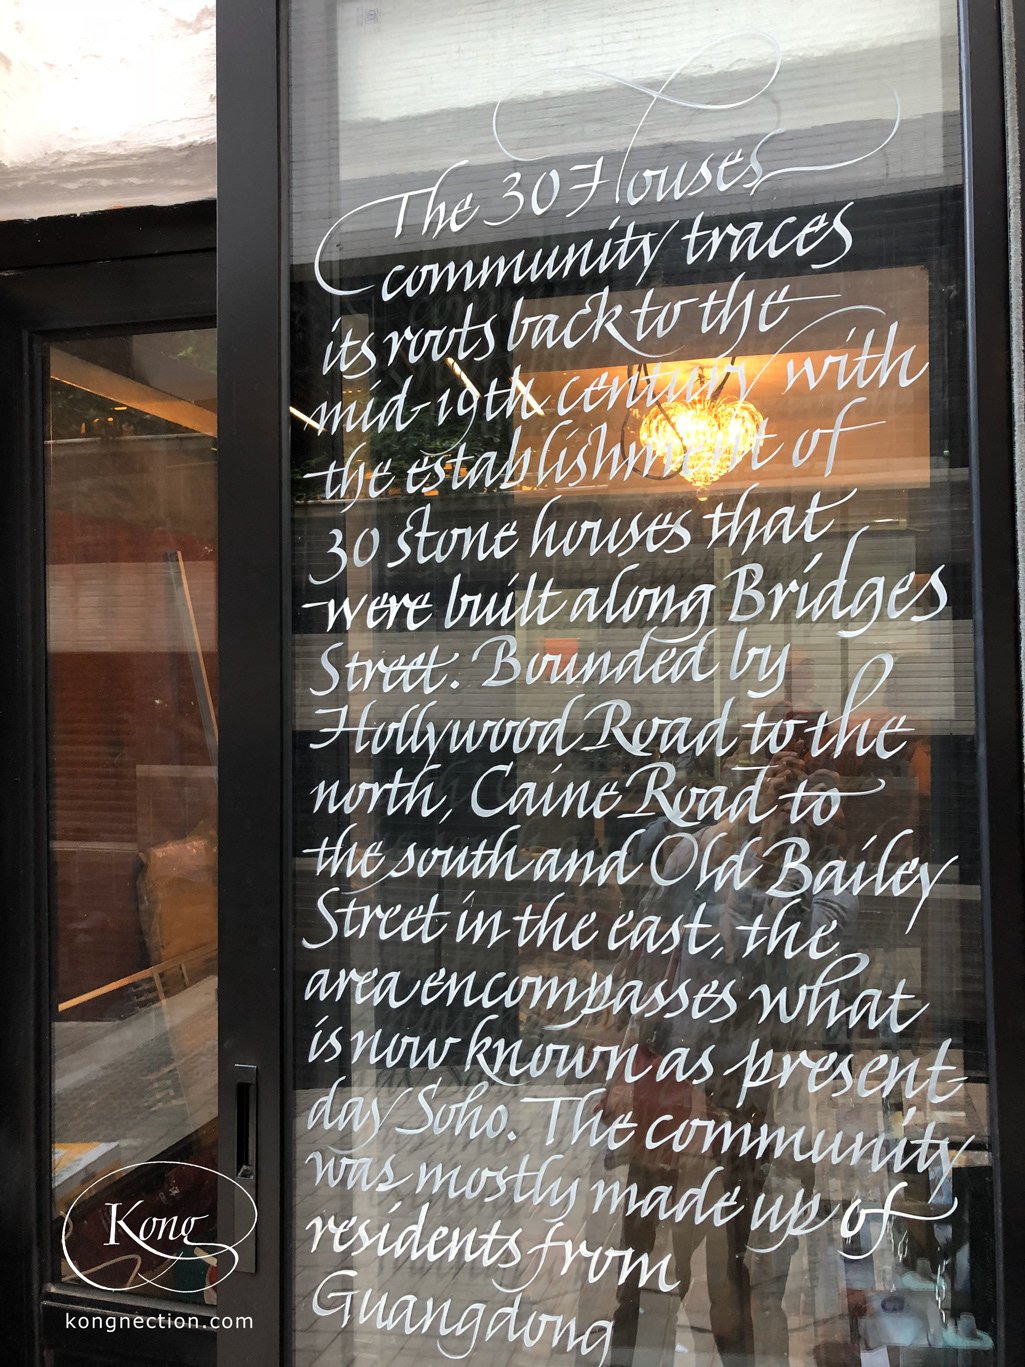 The 30 Houses
community traces
its roots back to the
mid-19th century with
the establishment of
30 stone houses that
were built along Bridges
Street. Bounded by
Hollywood Road to the
north, Caine Road to
the south and Old Bailey
Street in the east, the
area encompasses what
is now known as present-
day Soho. The community
was mostly made up of
residents from
Guangdong
Kong
kongnection.com